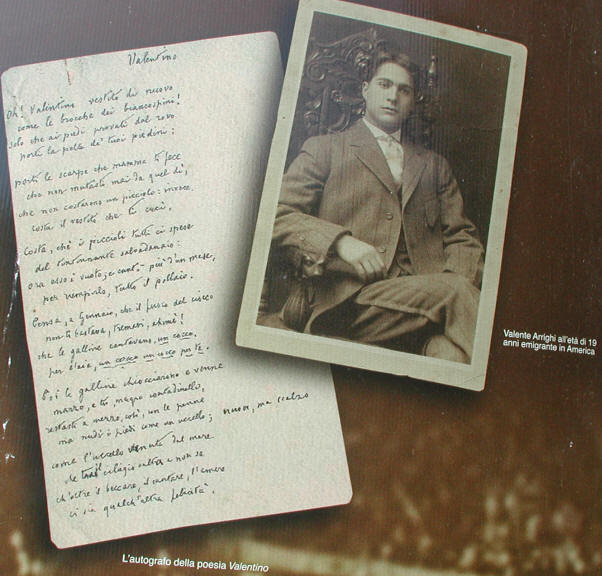 Valentino
Oh! Valentino vestito di nuovo
come le brocche dei biancospini!
solo che ai piedi provati dal rovo
porti la pelle de' tuoi piedini:
porti le scarpe che mamma ti fece
che non mutasti mai da quel dì,
che non costarono un picciolo: invece
costa il vestito che ti cucì.
Costa, ché i piccioli tutti ci spese
del tintinnante salvadanaio:
ora esso è vuoto; e cantò più d'un mese,
per riempirlo, tutto il pollaio.
Pensa, a Gennaio, che il fuoco del ciocco
non ti bastava, tremavi, ahimè!
che le galline cantavano, un cocco,
per l'aia, un cocco un cocco per te.
Poi le galline chiocciarono e venne
marzo, e tu, magro contadinello,
restasti a mezzo, così, con le penne
ma nudi i piedi come un uccello; nuove, ma scalzo
come l'uccello venuto dal mare
che tra il ciliegio salta e non sa
ch'oltre il beccare, il cantare, l'amare
ci sia qualch'altra felicità.
Valente Arrighi all'età di 19
anni emigrante in America
L'autografo della poesia Valentino